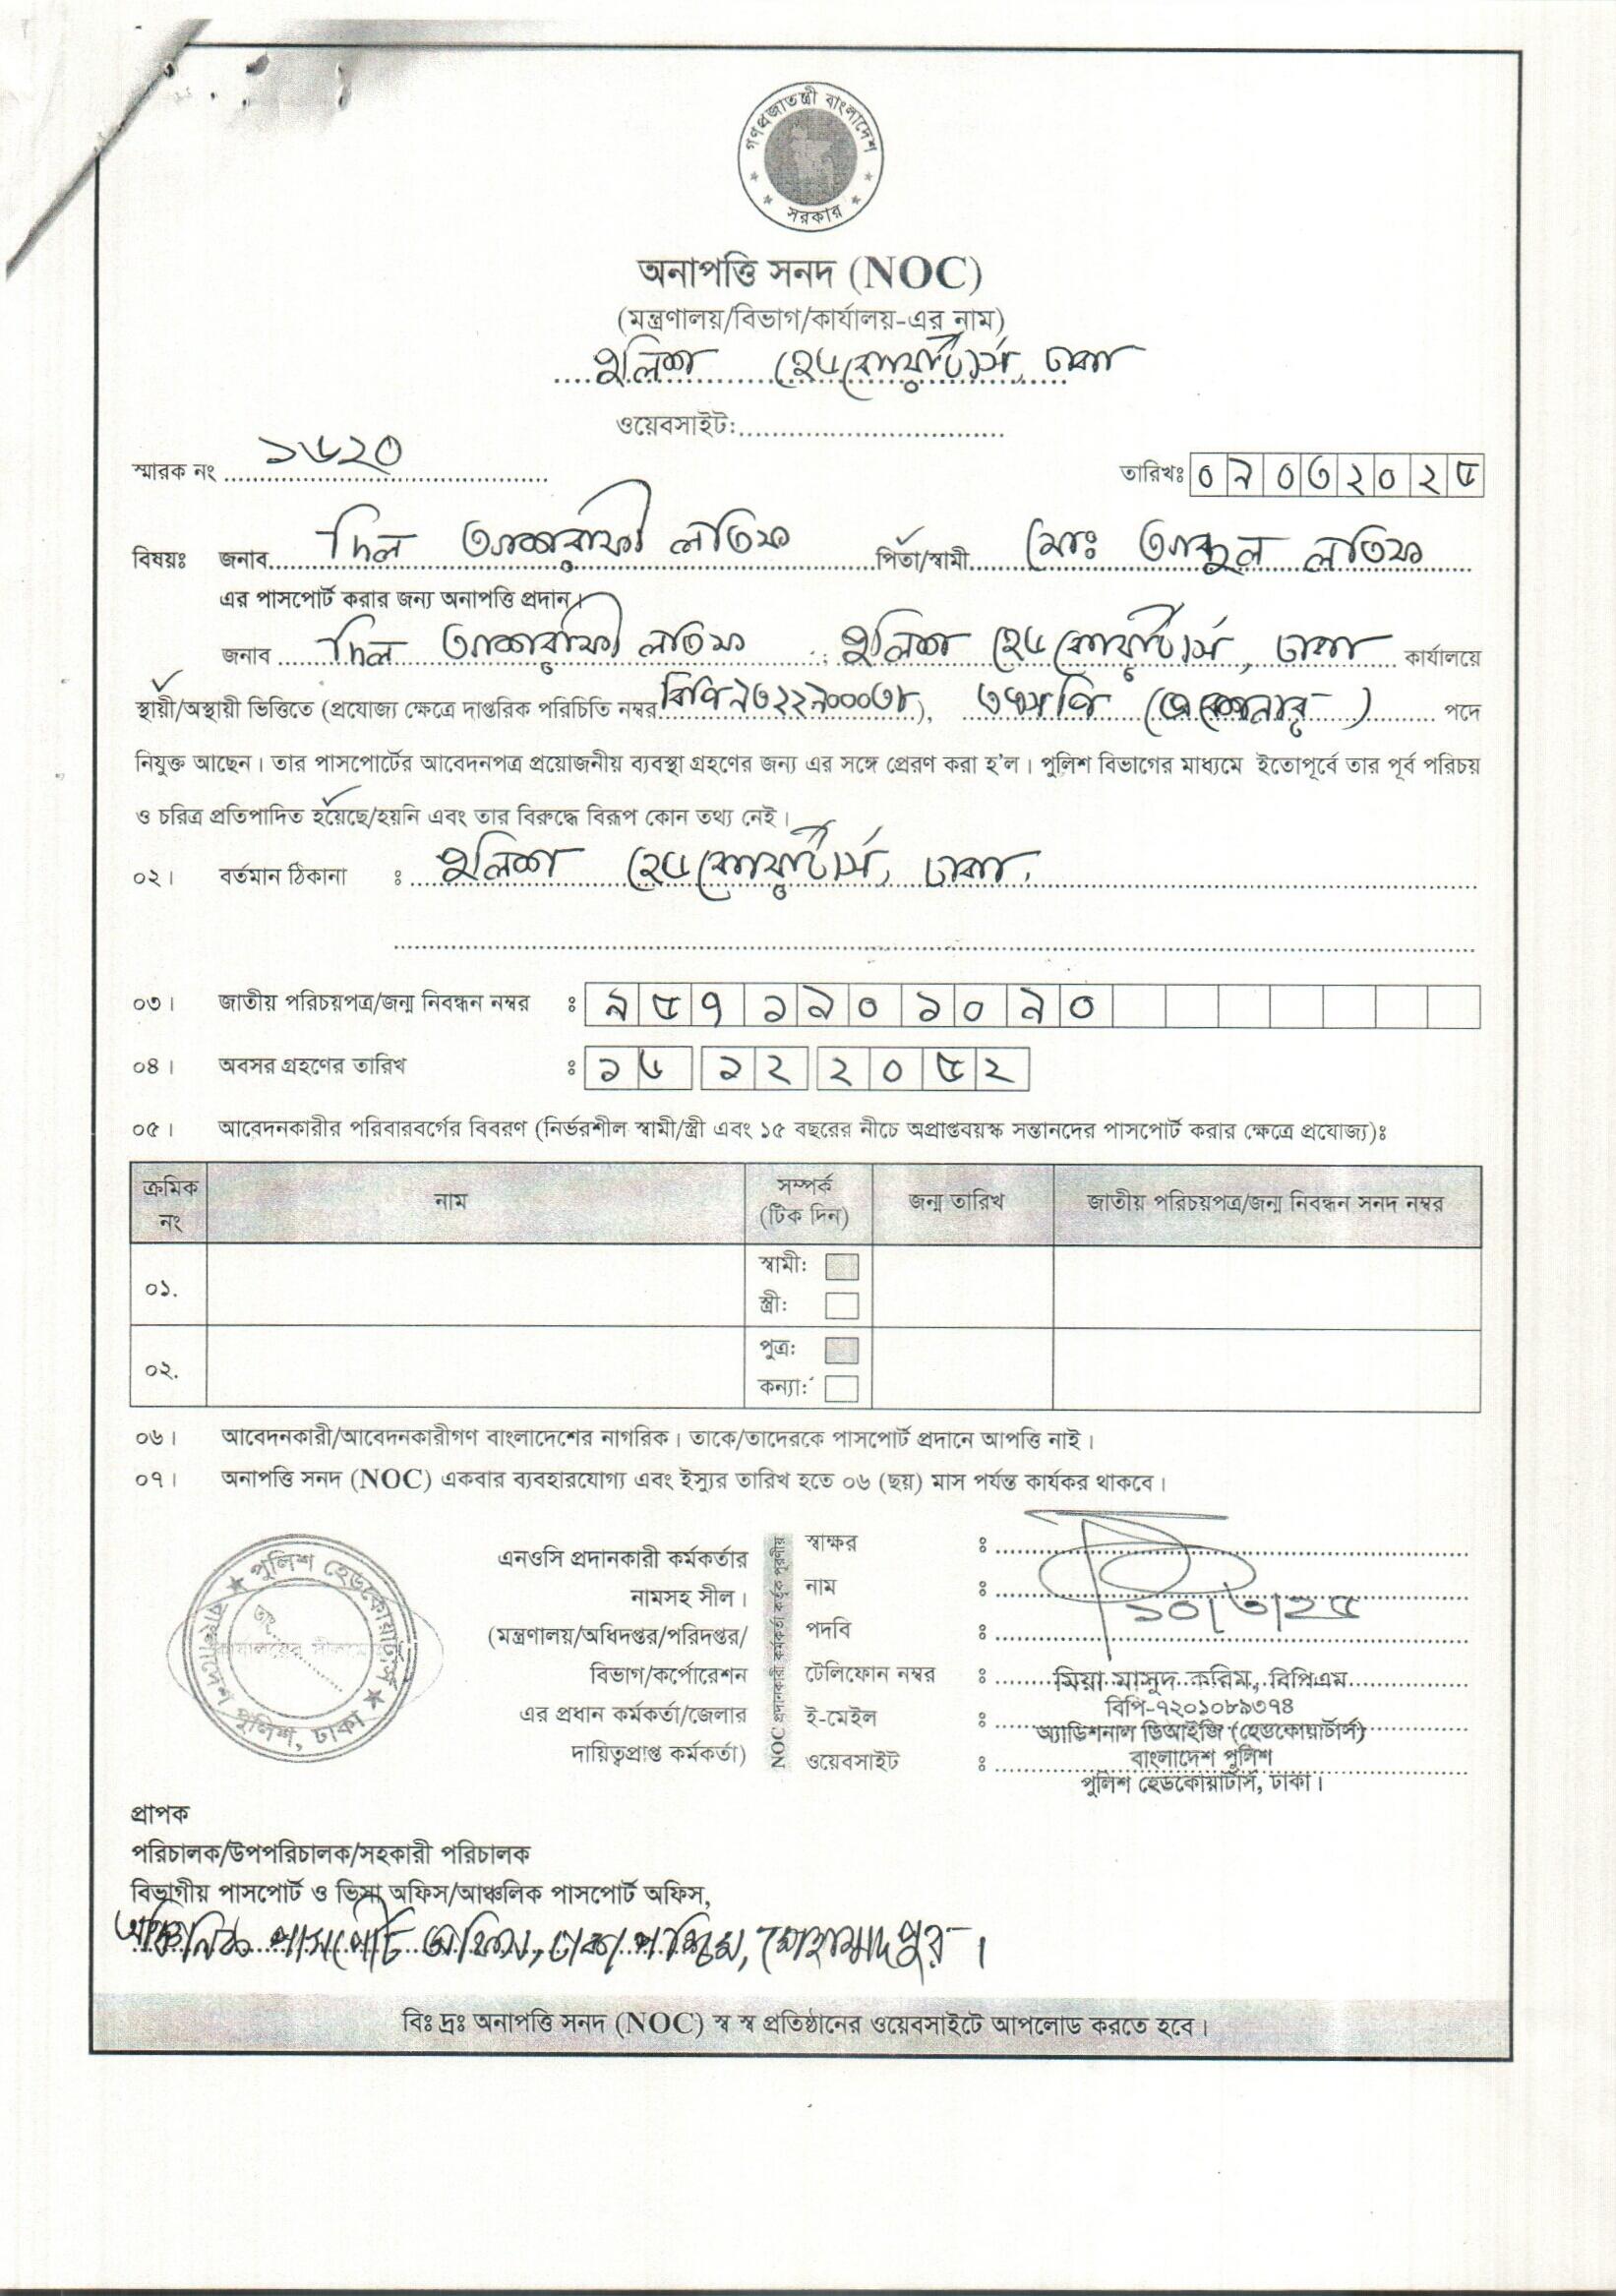 গণপ্রজাতন্ত্রী বাংলাদেশ
সরকার
অনাপত্তি সনদ (NOC)
(মন্ত্রণালয়/বিভাগ/কার্যালয়-এর নাম)
পুলিশ হেডকোয়ার্টার্স, ঢাকা
ওয়েবসাইট:
স্মারক নং ১৬২০ তারিখঃ ০৯০৩২০২৫
বিষয়ঃ জনাব দিল আশরাফী লতিফ পিতা/স্বামী মোঃ আব্দুল লতিফ
এর পাসপোর্ট করার জন্য অনাপত্তি প্রদান।
জনাব দিল আশরাফী লতিফ, পুলিশ হেডকোয়ার্টার্স, ঢাকা কার্যালয়ে
স্থায়ী/অস্থায়ী ভিত্তিতে (প্রযোজ্য ক্ষেত্রে দাপ্তরিক পরিচিতি নম্বর বিপি ৯৩২২৯০০০৩৮), এএসপি পদে
নিযুক্ত আছেন। তার পাসপোর্টের আবেদনপত্র প্রয়োজনীয় ব্যবস্থা গ্রহণের জন্য এর সঙ্গে প্রেরণ করা হ'ল। পুলিশ বিভাগের মাধ্যমে ইতোপূর্বে তার পূর্ব পরিচয়
ও চরিত্র প্রতিপাদিত হয়েছে/হয়নি এবং তার বিরুদ্ধে বিরূপ কোন তথ্য নেই।
০২। বর্তমান ঠিকানা ঃ পুলিশ হেডকোয়ার্টার্স, ঢাকা।
০৩। জাতীয় পরিচয়পত্র/জন্ম নিবন্ধন নম্বর ঃ ৯৫৭১৯০১০৯০
০৪। অবসর গ্রহণের তারিখ ঃ ১৬ ১২ ২০৫২
০৫। আবেদনকারীর পরিবারবর্গের বিবরণ (নির্ভরশীল স্বামী/স্ত্রী এবং ১৫ বছরের নীচে অপ্রাপ্তবয়স্ক সন্তানদের পাসপোর্ট করার ক্ষেত্রে প্রযোজ্য)ঃ
ক্রমিক নং নাম সম্পর্ক (টিক দিন) জন্ম তারিখ জাতীয় পরিচয়পত্র/জন্ম নিবন্ধন সনদ নম্বর
০১. স্বামী:
স্ত্রী:
০২. পুত্র:
কন্যা:
০৬। আবেদনকারী/আবেদনকারীগণ বাংলাদেশের নাগরিক। তাকে/তাদেরকে পাসপোর্ট প্রদানে আপত্তি নাই।
০৭। অনাপত্তি সনদ (NOC) একবার ব্যবহারযোগ্য এবং ইস্যুর তারিখ হতে ০৬ (ছয়) মাস পর্যন্ত কার্যকর থাকবে।
পুলিশ হেডকোয়ার্টার্স
বাংলাদেশ পুলিশ, ঢাকা
এনওসি প্রদানকারী কর্মকর্তার
নামসহ সীল।
(মন্ত্রণালয়/অধিদপ্তর/পরিদপ্তর/
বিভাগ/কর্পোরেশন
এর প্রধান কর্মকর্তা/জেলার
দায়িত্বপ্রাপ্ত কর্মকর্তা)
NOC প্রদানকারী কর্মকর্তা কর্তৃক পূরণীয়
স্বাক্ষর ঃ
নাম ঃ ১০/৩/২৫
পদবি ঃ
টেলিফোন নম্বর ঃ মিয়া মাসুদ করিম, বিপিএম
বিপি-৭২০১০৮৯৩৭৪
ই-মেইল ঃ অ্যাডিশনাল ডিআইজি (হেডকোয়ার্টার্স)
বাংলাদেশ পুলিশ
ওয়েবসাইট ঃ পুলিশ হেডকোয়ার্টার্স, ঢাকা।
প্রাপক
পরিচালক/উপপরিচালক/সহকারী পরিচালক
বিভাগীয় পাসপোর্ট ও ভিসা অফিস/আঞ্চলিক পাসপোর্ট অফিস,
আঞ্চলিক পাসপোর্ট অফিস, ঢাকা পশ্চিম, মোহাম্মদপুর।
বিঃ দ্রঃ অনাপত্তি সনদ (NOC) স্ব স্ব প্রতিষ্ঠানের ওয়েবসাইটে আপলোড করতে হবে।